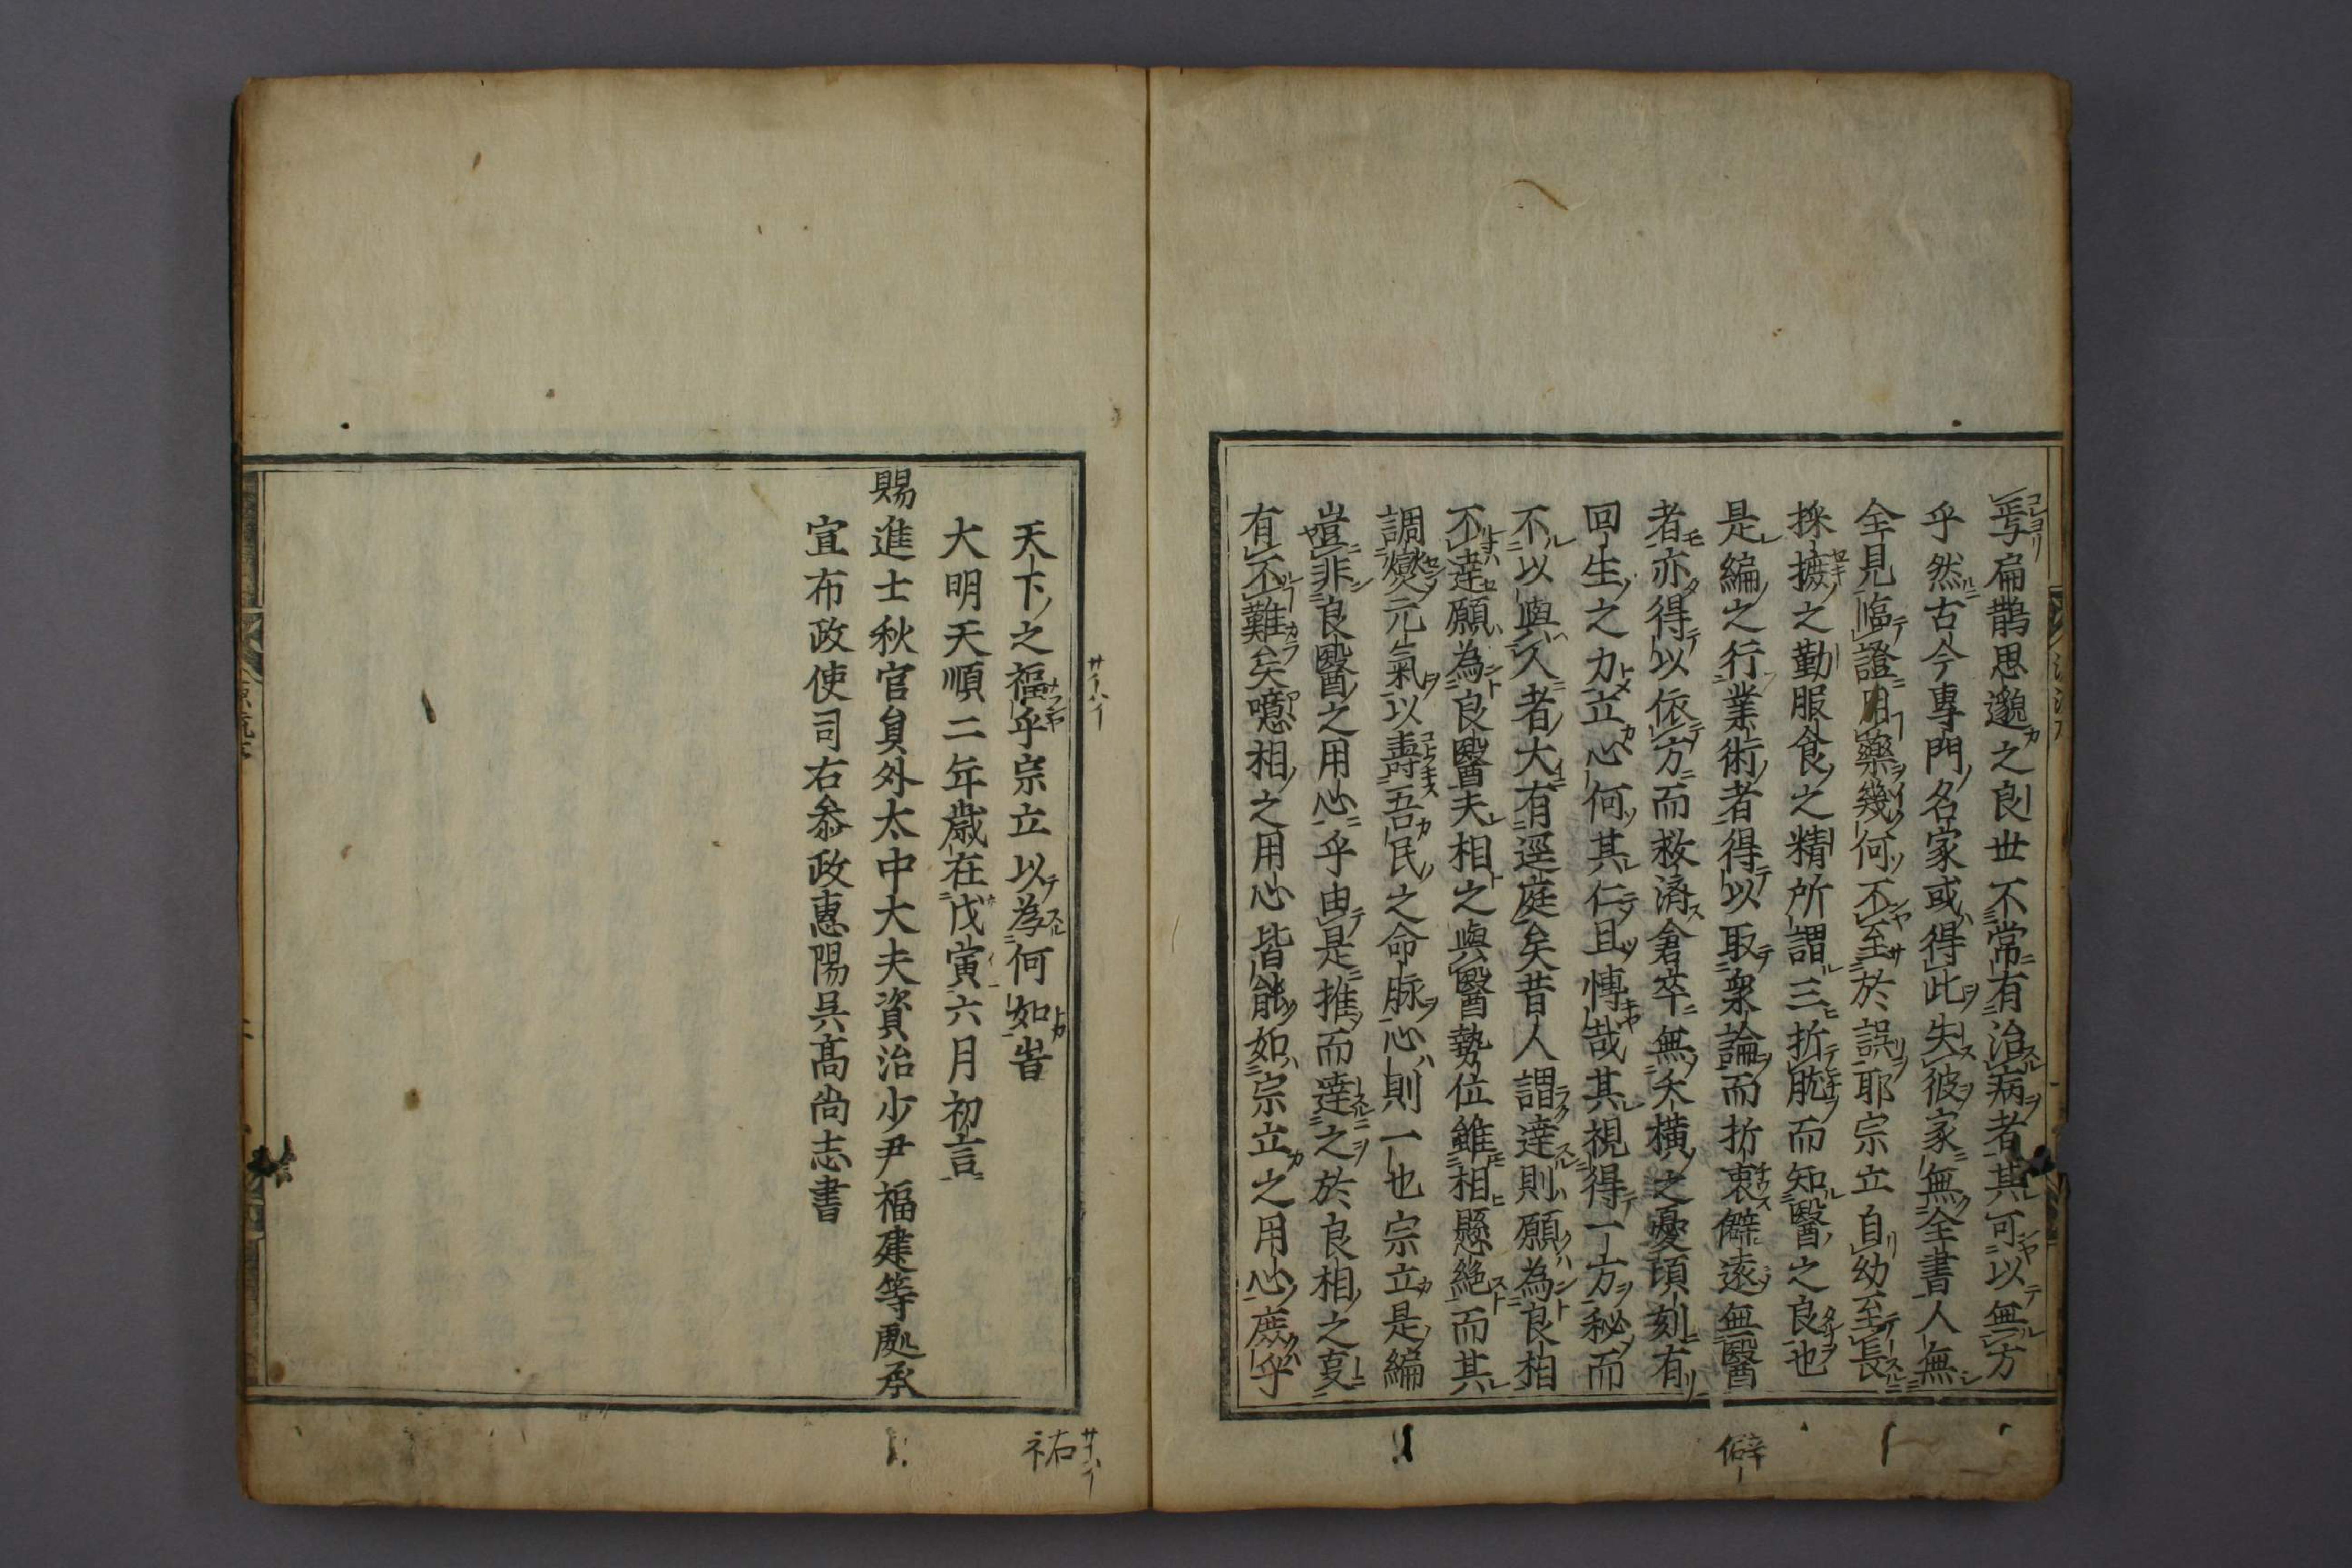 扁鵲思邈之良世不常有治病者其可以無方
乎然古今專門名家或得此失彼家無全書人無
全見臨證用藥幾何不至於誤耶宗立自幼至長
採摭之勤服食之精所謂三折肱而知醫之良也
是編之行業術者得以取衆論而折衷僻遠無醫
者亦得以依方而救済倉卒無夭横之憂頃刻有
回生之力立心何其仁且慱哉其視得一方秘而
不以與人者大有逕庭矣昔人謂達則願為良相
不達願為良醫夫相之與醫勢位雖相懸絶而其
調爕元氣以壽吾民之命脉心則一也宗立是編
豈非良醫之用心乎由是推而達之於良相之
有不難矣噫相之用心皆能如宗立之用心庶乎
僻
天下之福乎宗立以為何如旹
大明天順二年歳在戊寅六月初吉
賜進士秋官貟外太中大夫資治少尹福建等處承
宣布政使司右叅政惠陽呉髙尚志書
祐